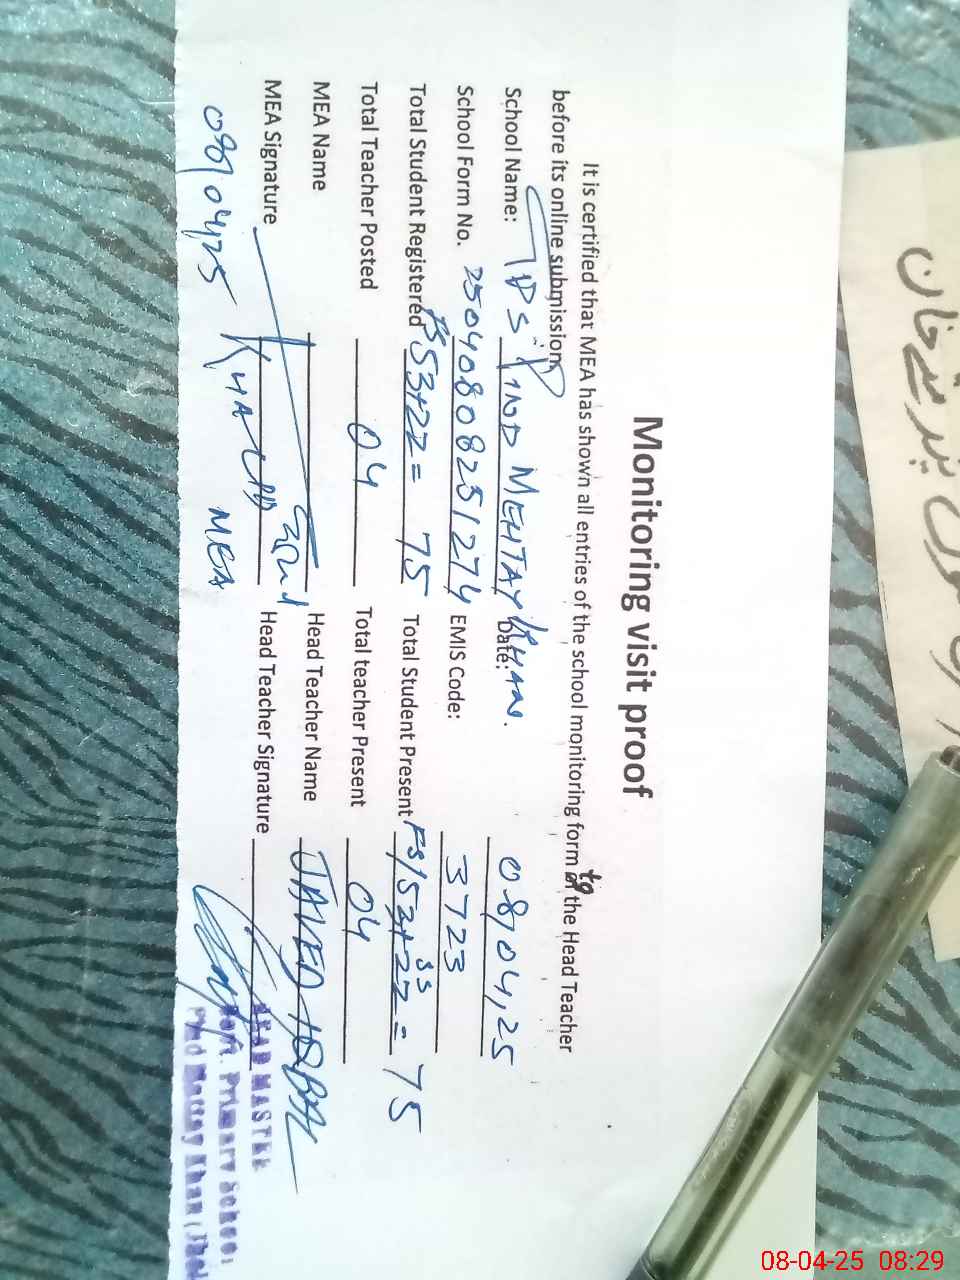 Monitoring visit proof
It is certified that MEA has shown all entries of the school monitoring form to the Head Teacher
before its online submission.
School Name: GPS PIND MEHTAY KHAN. Date: 08,04,25
School Form No. 25040808251274 EMIS Code: 3723
Total Student Registered 53+22= 75 Total Student Present FS/53+22 = 75
Total Teacher Posted 04 Total teacher Present 04
MEA Name Head Teacher Name JAVED IQBAL
MEA Signature KHALID Head Teacher Signature
08/04/25 MEA
HEAD MASTER
Govt. Primary School
Pind Mattay Khan (Jhel
خان
08-04-25 08:29